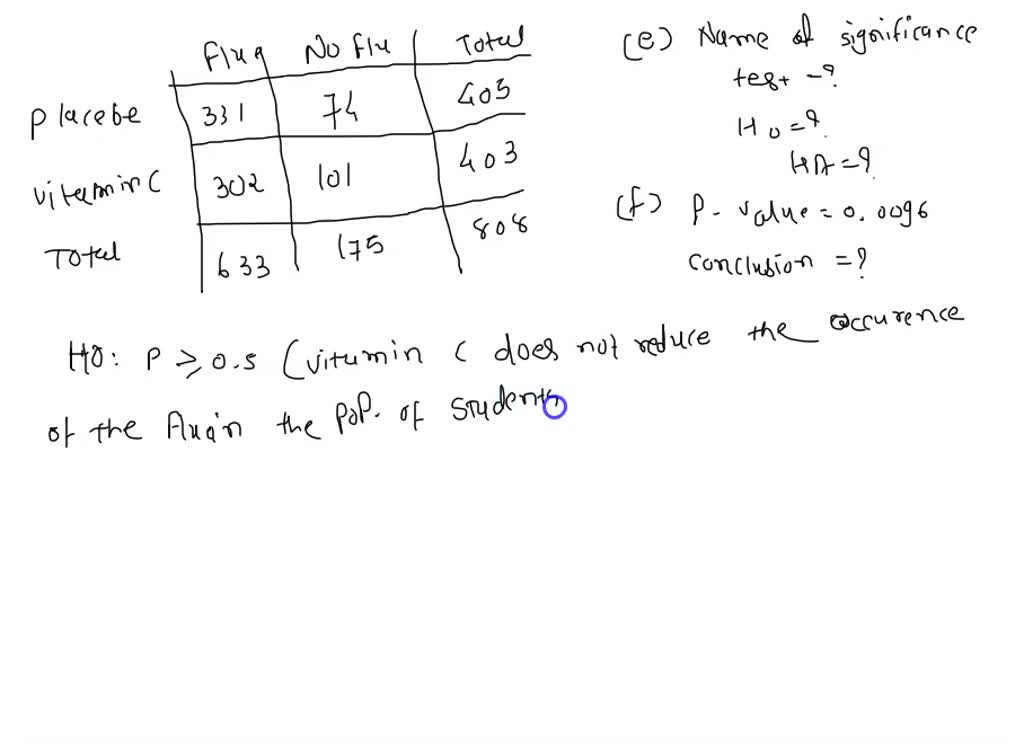 Flug No Flu Total
Placebe 331 74 405
Vitamin C 302 101 403
Total 633 175 808
(e) Name of significance
test -?
H0 = ?
HA = ?
(f) P- value = 0.0096
conclusion = ?
H0: P ≥ 0.5 (vitumin C does not reduce the occurence
of the in the POP. of students